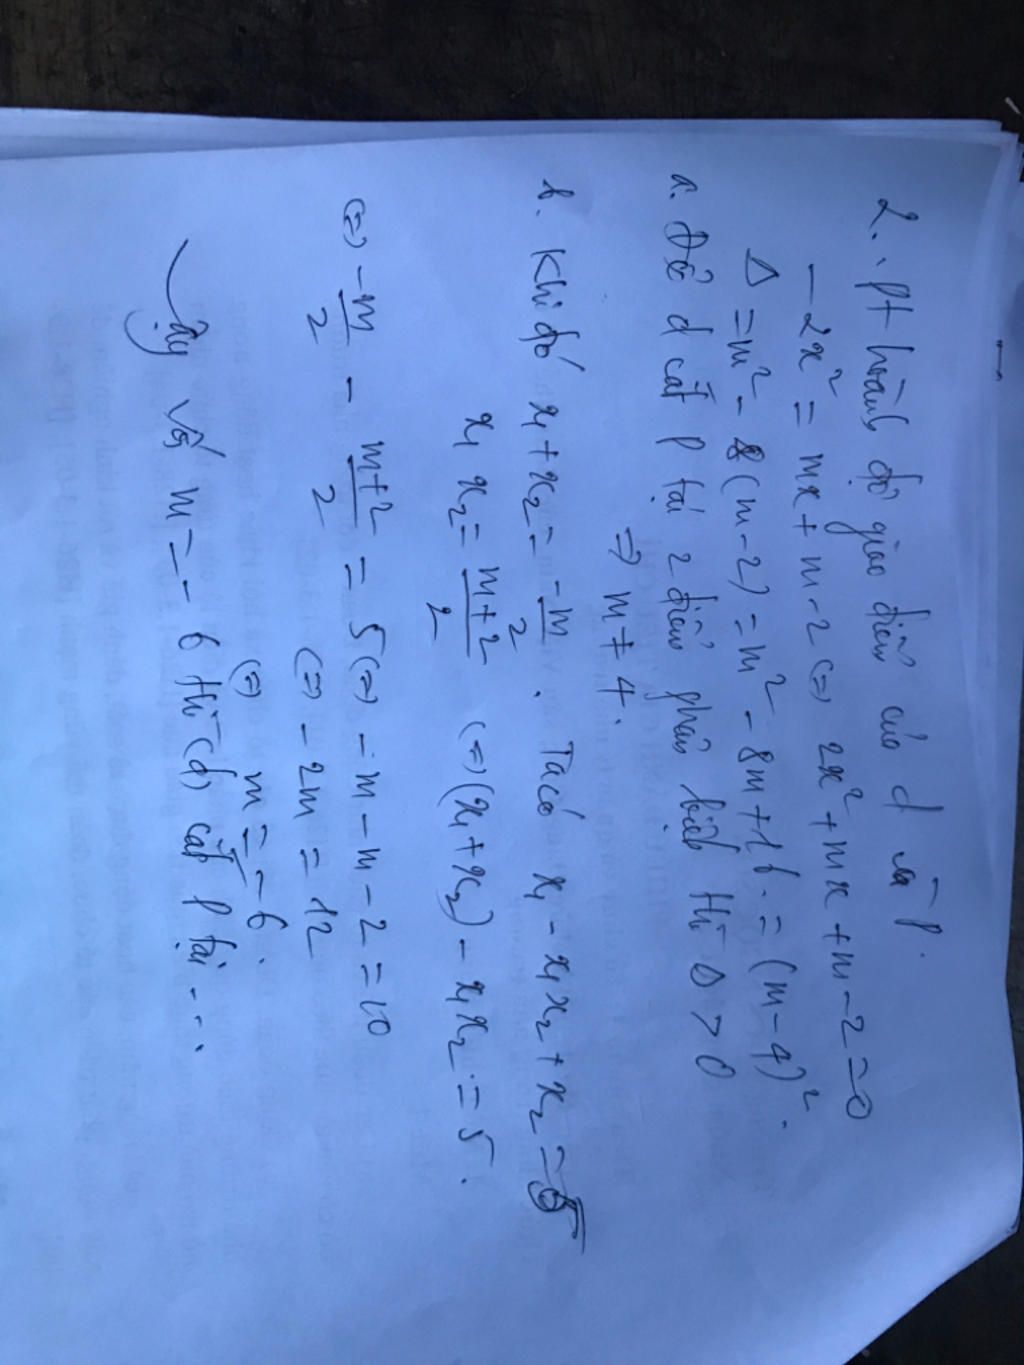 2. Pt hoành độ giao điểm của d và P.
- 2x² = mx + m - 2 (=) 2x² + mx + m - 2 = 0
Δ = m² - 8(m-2) = m² - 8m + 16. = (m-4)².
a. Để d cắt P tại 2 điểm phân biệt thì Δ > 0
=> m ≠ 4.
b. Khi đó x₁ + x₂ = -m/2 . Ta có x₁ - x₁x₂ + x₂ = 5
x₁ x₂ = m+2/2 (=) (x₁ + x₂) - x₁x₂ = 5.
(=) -m/2 - m+2/2 = 5 (=) -m - m - 2 = 10
(=) - 2m = 12
(=) m = -6.
Vậy với m = - 6 thì (d) cắt P tại ...